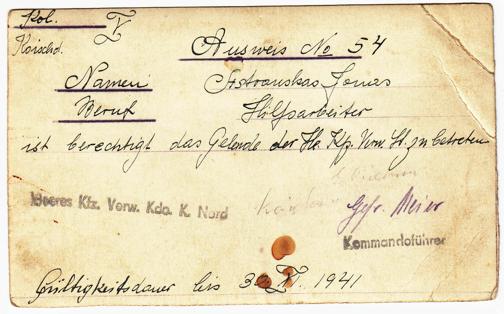 Kol. V
Ausweis No 54
Namen
Jonas
Beruf
Hilfsarbeiter
ist berechtigt das Gelände der Hs. Kfz. Verw. St. zu betreten
Heeres Kfz. Verw. Kdo. K. Nord
Gefr. Meier
Kommandoführer
Gültigkeitsdauer bis 30 VI. 1941